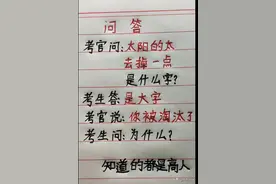 问答
考官问:太阳的太
去掉一点
是什么字?
考生答:是大字
考官说:你被淘汰了
考生问:为什么?
知道的都是高人